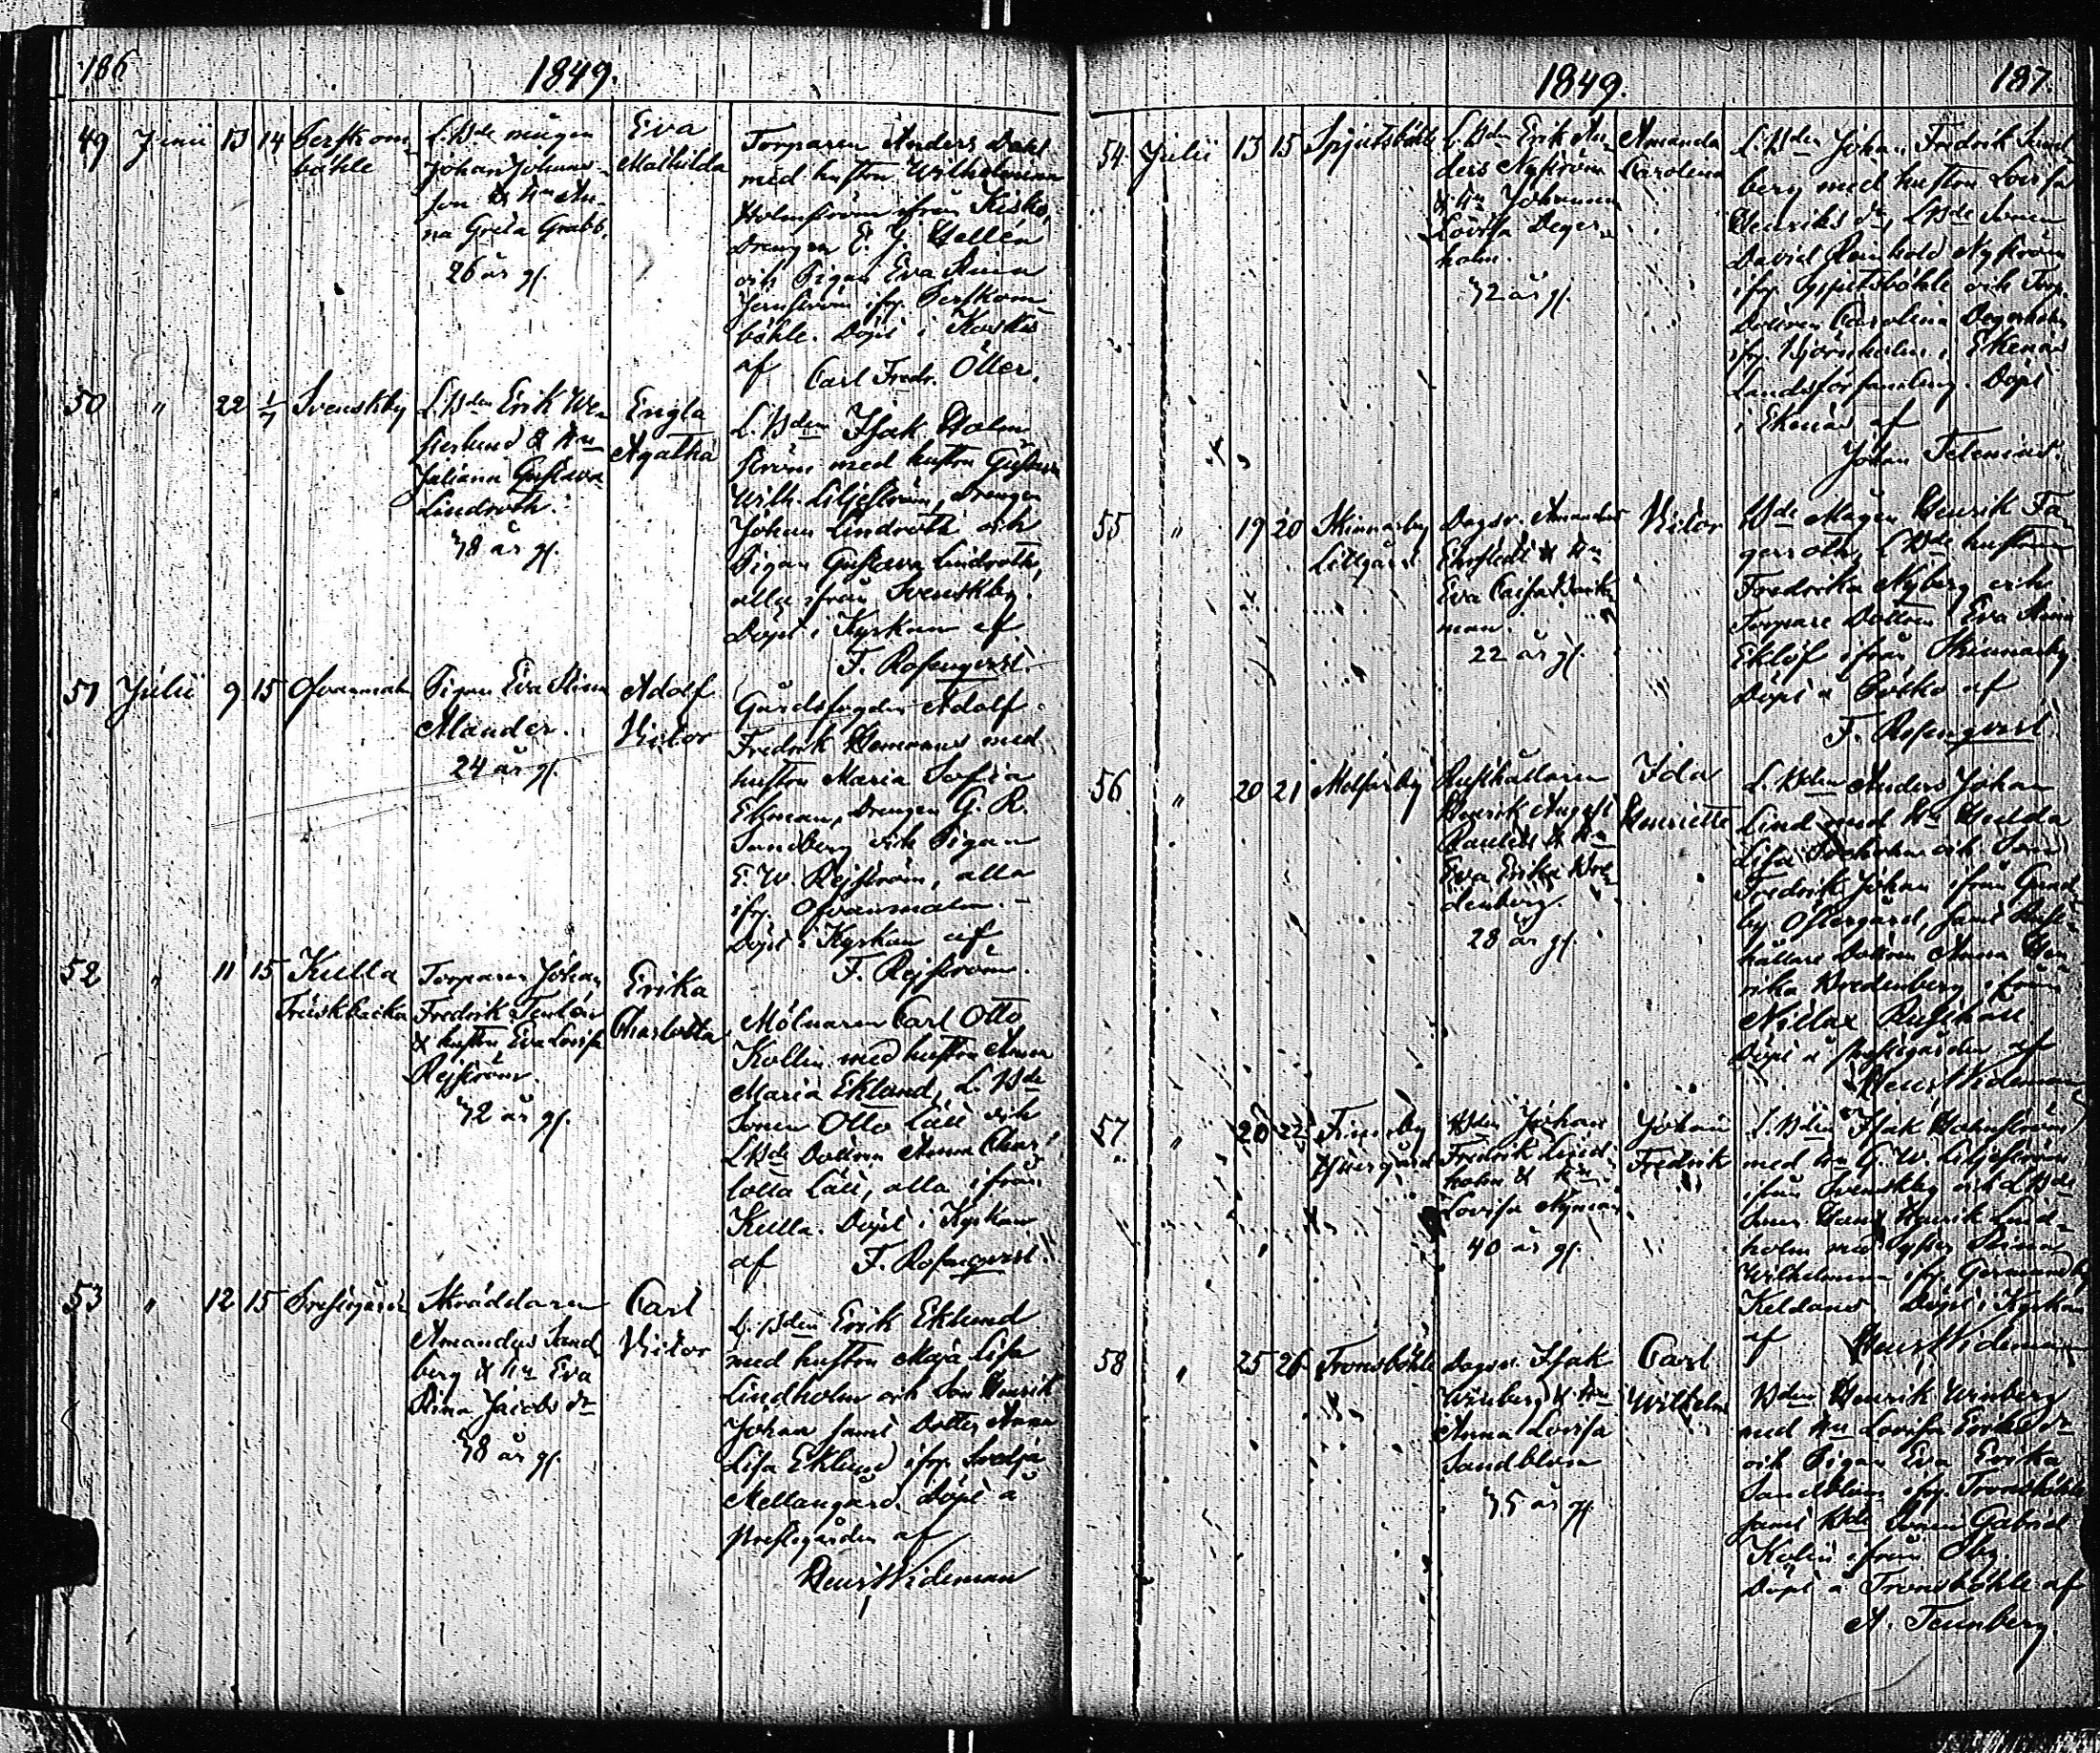 186
1849.
49 Junii 13 14 Perskom-
böhle
L.Bde mågen
Johan Johans-
son & Hu An-
na Greta Grabb.
26 år gl.
Eva
Mathilda
Torparen Anders Dahl
med hustru Wilhelmina
Holmström ifrån Kisko,
Drengen E. J. Hellén
och Pigan Eva Stina
Jernström ifr. Perskom-
böhle. Döpt i Koskis
af Carl Fredr. Öller.
50 " 22 1/7 Svenskby
L.Bden Erik We-
sterlund & Hu
Juliana Gustava
Lindroth.
38 år gl.
Engla
Agatha
L.Bden Isak Holm-
ström med hustru Gustava
Wilh. Liljeström, Drengen
Johan Lindroth och
Pigan Gustava Lindroth,
alla ifrån Svenskby.
Döpt i Kyrkan af
F. Rosenqvist.
51 Julii 9 15 Ofvanmalm
Pigan Eva Stina
Alander.
24 år gl.
Adolf
Victor
Gårdsfogden Adolf
Fredrik Hemans med
hustru Maria Sofia
Ekman, Drengen G. R.
Sandberg och Pigan
E. W. Rejström, alla
ifr. Ofvanmalm.
Döpt i Kyrkan af
F. Rejström.
52 " 11 15 Kulla
Träskbacka
Torparen Johan
Fredrik Tenlén
& hustru Eva Lovisa
Rejström.
32 år gl.
Erika
Charlotta
Mölnaren Carl Otto
Kollin med hustru Anna
Maria Eklund, L.Bde
Sonen Otto Lätt och
L.Bde Dottren Anna Char-
lotta Lätt, alla ifrån
Kulla. Döpt i Kyrkan
af F. Rosenqvist.
53 " 12 15 Prestgården
Skräddaren
Amandus Sand-
berg & Hu Eva
Stina Jacobs dr
38 år gl.
Carl
Victor
L.Bden Erik Eklund
med hustru Maja Lisa
Lindholm och Son Henrik
Johan samt Dotter Anna
Lisa Eklund ifr.
Mellangård. Döpt å
Prestgården af
Henr Wideman
1849.
187.
54 Julii 13 15 Spjutsböhle
L.Bden Erik An-
ders Nyström
& Hu Johanna
Lovisa Deger-
holm.
32 år gl.
Amanda
Carolina
L.Bden Johan Fredrik Sund-
berg med hustru Lovisa
Henriks dr, L.Bde Sonen
David Reinhold Nyström
ifr. Spjutsböhle och Torp.
Dottren Carolina Degerholm
ifr. Björnholm i Ekenäs
Landsförsamling. Döpt
i Ekenäs af
Johan Telenius.
55 " 19 20 Skinnarby
Lillgård
Dagsv. Amandus
Ehrstedt & Hu
Eva Caisa Berk-
man.
22 år gl.
Victor
Bde Mågen Henrik Fa-
gerroth, L.Bde hustrun
Fredrika Nyberg och
Torpare Dottren Eva Stina
Eklöf ifrån Skinnarby.
Döpt å af
F. Rosenqvist.
56 " 20 21 Molfarby
Rusthållaren
Henrik August
& Hu
Eva Erika Bre-
denberg
28 år gl.
Ida
Henriette
L.Bden Anders Johan
Lind med Hu Hedda
Lisa och Son
Fredrik Johan ifrån
by Östergård, samt Rust-
hållare Dottren Anna Hen-
rika Bredenberg ifrån
Rusthåll.
Döpt å Prestgården af
Henr Wideman
57 " 20 22 Finnby
Yttergård
Bden Johan
Fredrik Lind-
holm & Hu
Lovisa Nyman
40 år gl.
Johan
Fredrik
L.Bden Isak Holmström
med Hu G. W. Liljeström
ifrån Svenskby och L.Bde
Son Henrik Lind-
holm med syster Stina
Wilhelmina ifr. Germundby
Döpt i Kyrkan
af Henr Wideman
58 " 25 26 Tronsböhle
Dagsv. Isak
Winberg & Hu
Anna Lovisa
Sandblom
35 år gl.
Carl
Wilhelm
Bden Henrik Winberg
med Hu Lovisa Eriks dr
och Pigan Eva Erika
Sandblom ifr. Tronsböhle
samt Bde Sonen Gabriel
Kolin ifrån Öby.
Döpt å Tronsböhle af
A. Tennberg.